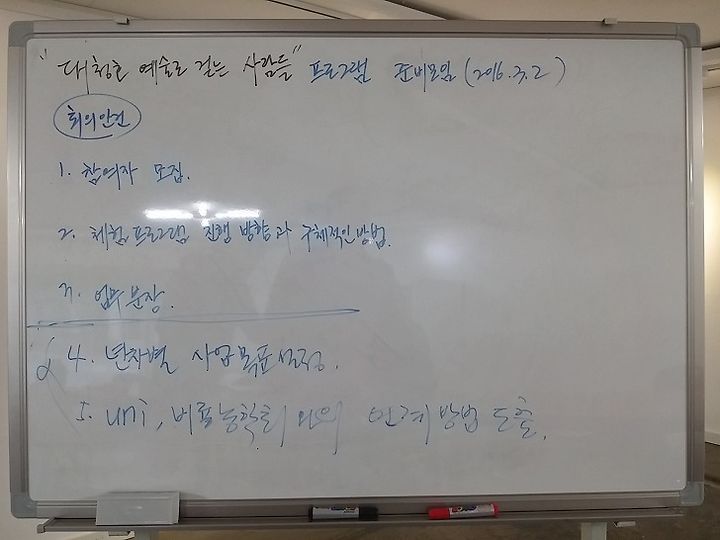 "대청호 예술로 걷는 사람들" 프로그램 준비모임 (2016.3.2)
회의안건
1. 참여자 모집.
2. 체험프로그램 진행 방향과 구체적인 방법.
3. 업무분장.
4. 년차별 사업목표설정.
5. uni, 연계방법 도출.